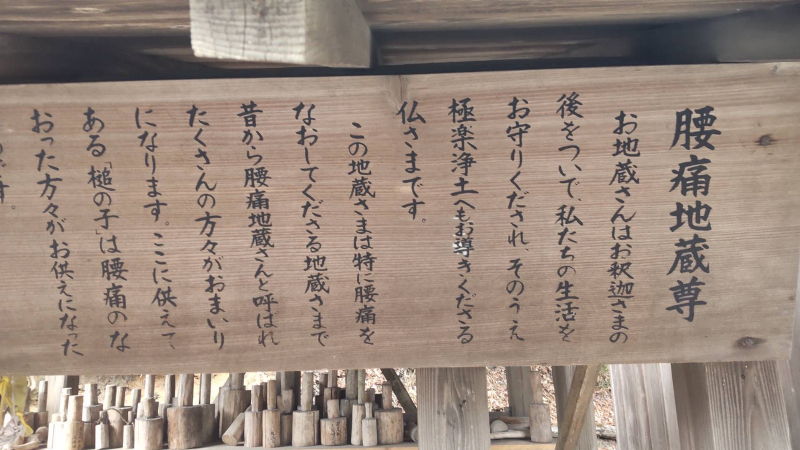 腰痛地蔵尊
お地蔵さんはお釈迦さまの
後をついで、私たちの生活を
お守りくだされ、そのうえ
極楽浄土へもお導きくださる
仏さまです。
この地蔵さまは特に腰痛を
なおしてくださる地蔵さまで
昔から腰痛地蔵さんと呼ばれ
たくさんの方々がおまいり
になります。ここに供えて
ある「槌の子」は腰痛のな
おった方々がお供えになった
のです。